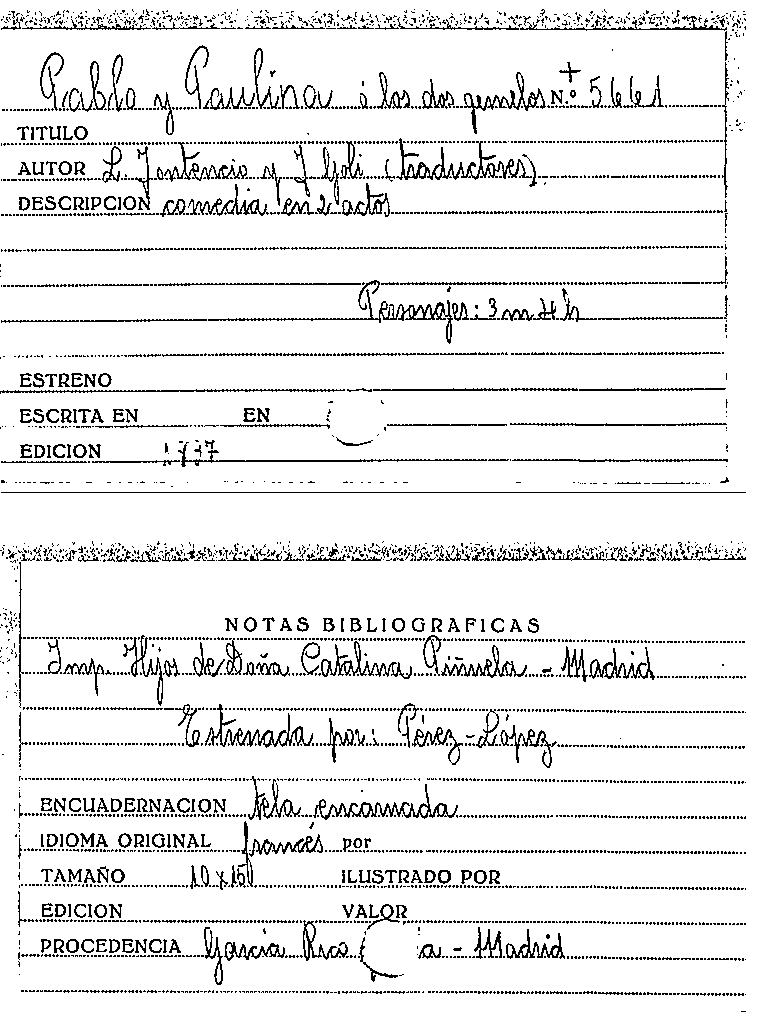 Pablo y Paulina ó los dos gemelos N.º 5661
TITULO
AUTOR L. Fontencio y J Goli (traductores)
DESCRIPCION comedia en 2 actos
Personajes: 3 m 4 h
ESTRENO
ESCRITA EN EN
EDICION 1737
NOTAS BIBLIOGRAFICAS
Imp. Hijos de Doña Catalina Piñuela - Madrid
Estrenada por: Pérez-López
ENCUADERNACION tela encarnada
IDIOMA ORIGINAL francés por
TAMAÑO 10 x 150 ILUSTRADO POR
EDICION VALOR
PROCEDENCIA García Rico a - Madrid